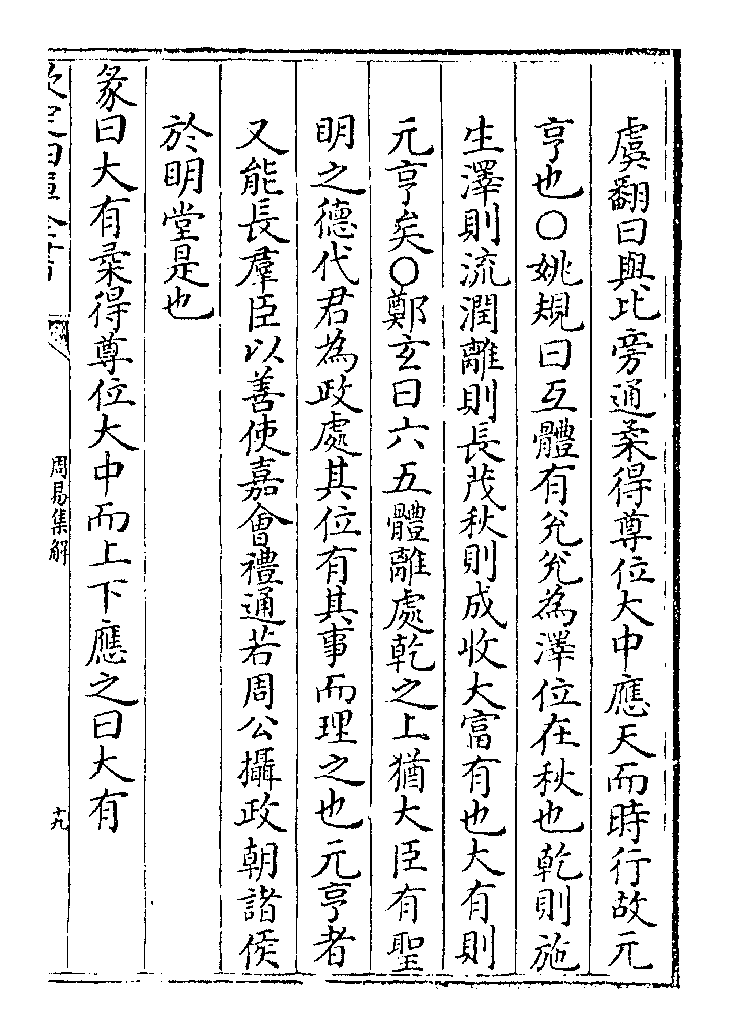 虞翻曰與比旁通柔得尊位大中應天而時行故元
亨也○姚規曰互體有兌兌為澤位在秋也乾則施
生澤則流潤離則長茂秋則成收大富有也大有則
元亨矣○鄭玄曰六五體離處乾之上猶大臣有聖
明之德代君為政處其位有其事而理之也元亨者
又能長羣臣以善使嘉會禮通若周公攝政朝諸侯
於明堂是也
彖曰大有柔得尊位大中而上下應之曰大有
欽定四庫全書
周易集解
十九